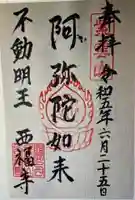 奉拝 令和五年六月二十五日
阿弥陀如来
不動明王 西福寺